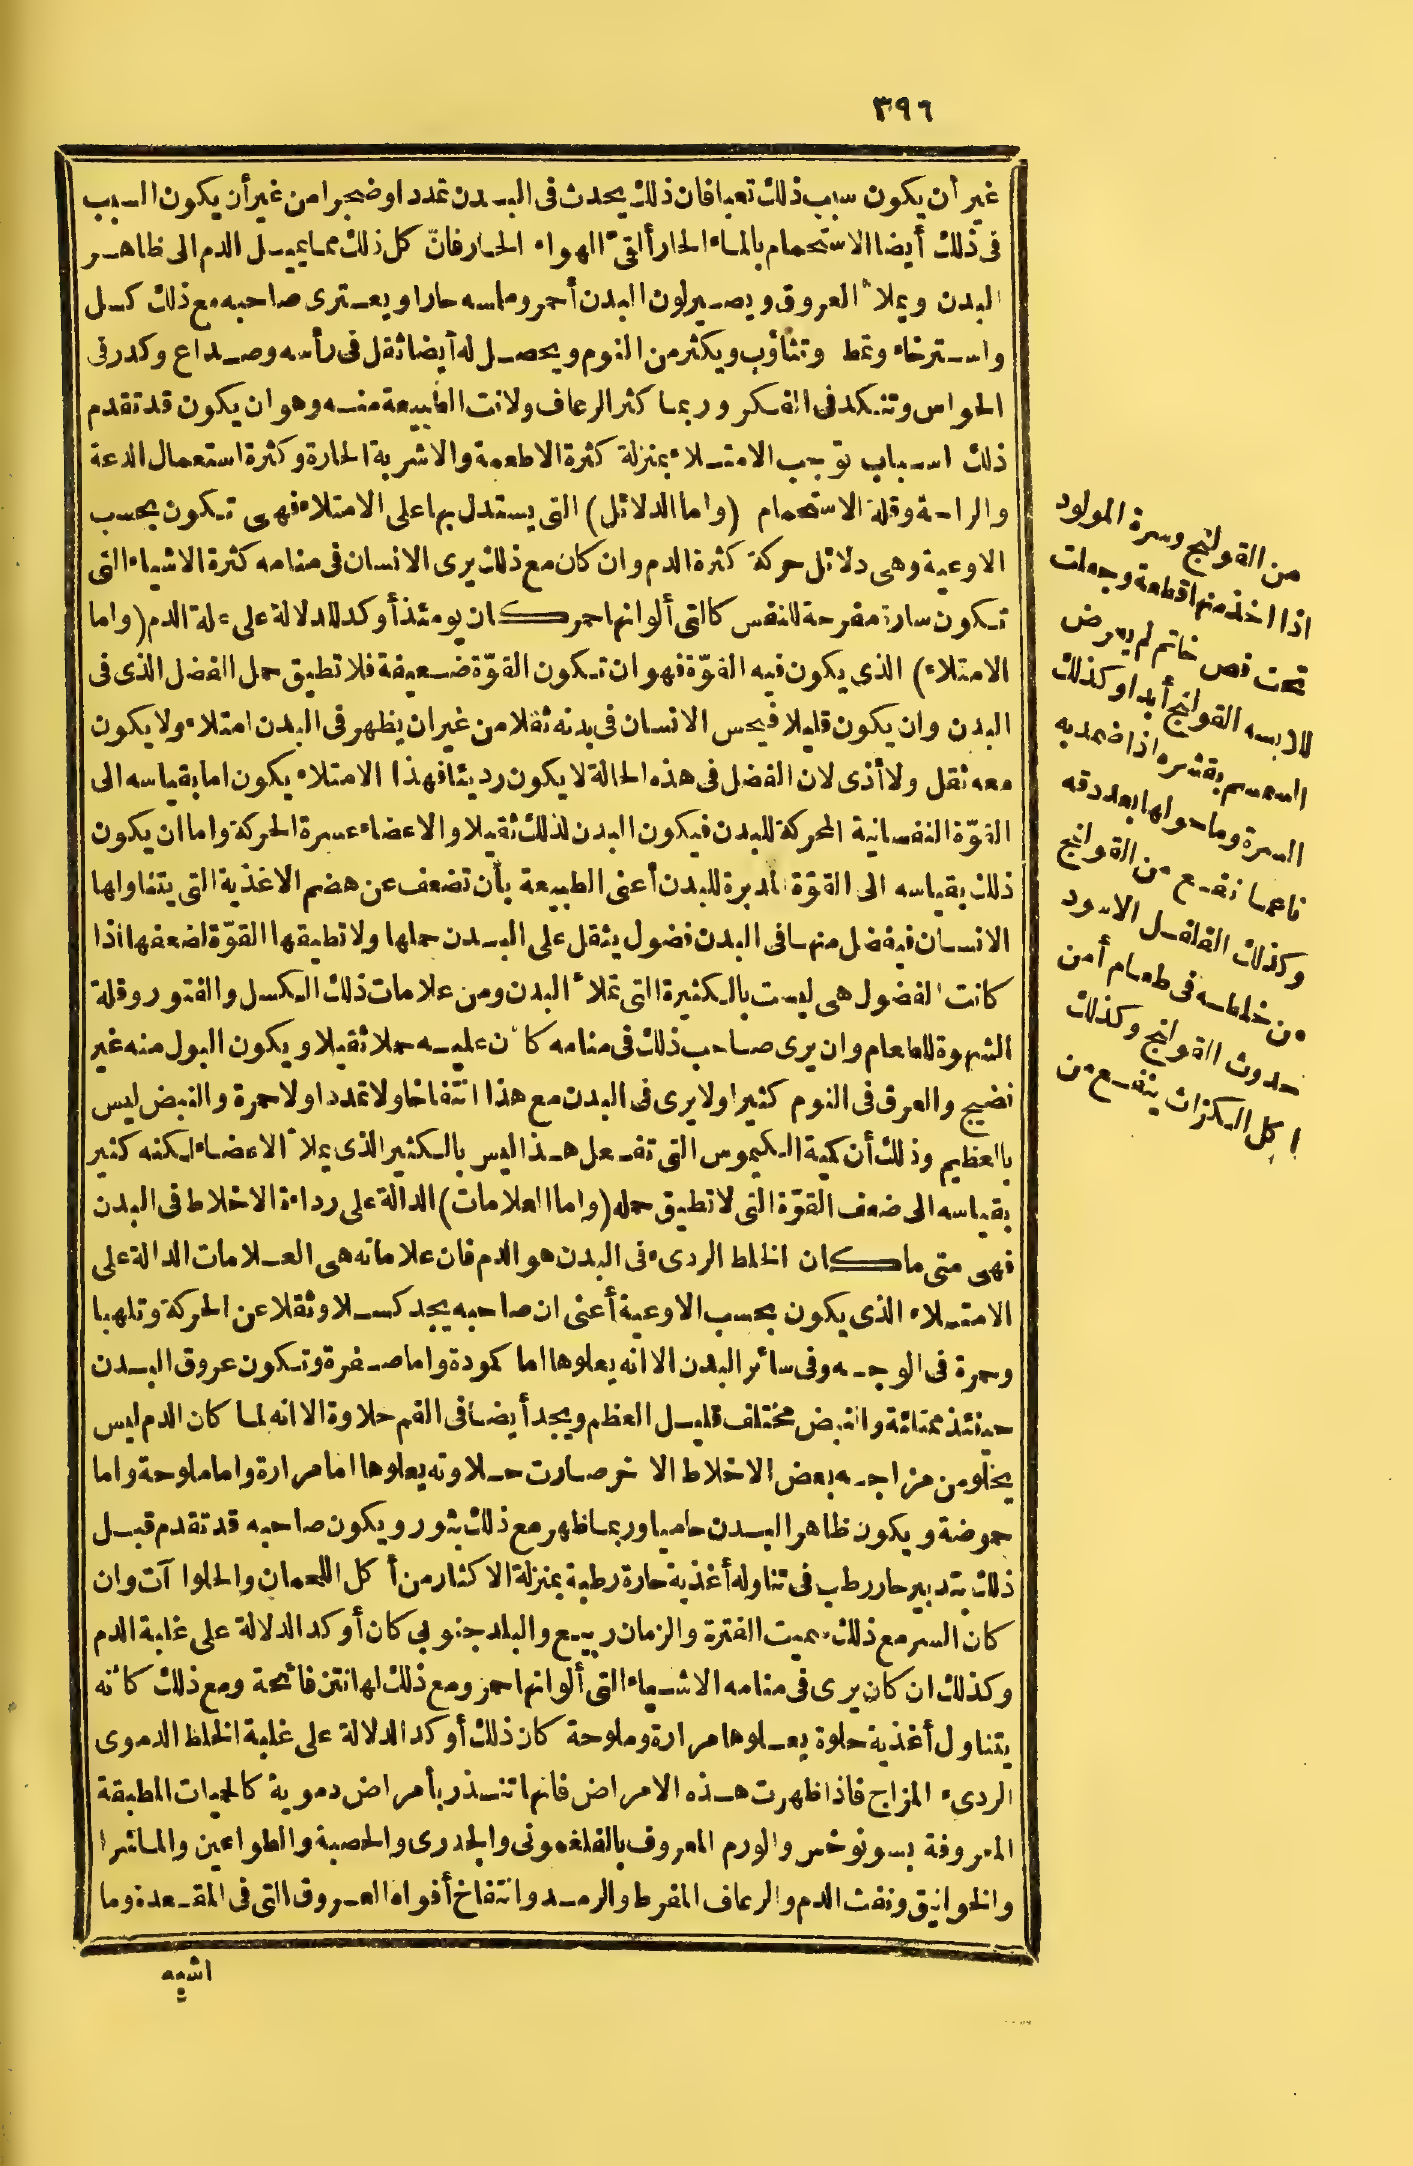 ٣٩٦
غير أن يكون سبب ذلك تعبا فان ذلك يحدث فى البدن تمددا وضجرا من غير أن يكون السبب
فى ذلك أيضا الاستحمام بالماء الحار أو الهواء الحار فانّ كل ذلك مما يميل الدم الى ظاهر
البدن ويملأ العروق ويصير لون البدن أحمر وملمسه حارا ويعترى صاحبه مع ذلك كسل
واسترخاء وتمط وتثاؤب ويكثر من النوم ويحصل له أيضا ثقل فى رأسه وصداع وكدر فى
الحواس وتنكد فى الفكر وربما كثر الرعاف ولانت الطبيعة منه وهو ان يكون قد تقدم
ذلك اسباب توجب الامتلاء بمنزلة كثرة الاطعمة والاشربة الحارة وكثرة استعمال الدعة
والراحة وقلة الاستحمام (واما الدلائل) التى يستدل بها على الامتلاء فهى تكون بحسب
الاوعية وهى دلائل حركة كثرة الدم وان كان مع ذلك يرى الانسان فى منامه كثرة الاشياء التى
تكون سارة مفرحة للنفس كالتى ألوانها حمر كان يومئذ أوكد للدلالة على علة الدم (واما
الامتلاء) الذى يكون فيه القوّة فهو ان تكون القوّة ضعيفة فلا تطيق حمل الفضل الذى فى
البدن وان يكون قليلا فيحس الانسان فى بدنه ثقلا من غير ان يظهر فى البدن امتلاء ولا يكون
معه ثقل ولا أذى لان الفضل فى هذه الحالة لا يكون رديئا فهذا الامتلاء يكون اما بقياسه الى
القوّة النفسانية المحركة للبدن فيكون البدن لذلك ثقيلا والاعضاء عسرة الحركة واما ان يكون
ذلك بقياسه الى القوّة المدبرة للبدن أعنى الطبيعة بأن تضعف عن هضم الاغذية التى يتناولها
الانسان فيفضل منها فى البدن فضول يثقل على البدن حملها ولا تطيقها القوّة لضعفها اذا
كانت الفضول هى ليست بالكثيرة التى تملأ البدن ومن علامات ذلك الكسل والفتور وقلة
الشهوة للطعام وان يرى صاحب ذلك فى منامه كأن عليه حملا ثقيلا ويكون البول منه غير
نضيج والعرق فى النوم كثيرا ولا يرى فى البدن مع هذا انتفاخا ولا تمددا ولا حمرة والنبض ليس
بالعظيم وذلك أن كمية الكيموس التى تفعل هذا ليس بالكثير الذى يملأ الاعضاء لكنه كثير
بقياسه الى ضعف القوّة التى لا تطيق حمله (واما العلامات) الدالة على رداءة الاخلاط فى البدن
فهى متى ما كان الخلط الردىء فى البدن هو الدم فان علاماته هى العلامات الدالة على
الامتلاء الذى يكون بحسب الاوعية أعنى ان صاحبه يجد كسلا وثقلا عن الحركة وتلهبا
وحمرة فى الوجه وفى سائر البدن الا انه يعلوها اما كمودة واما صفرة وتكون عروق البدن
حينئذ ممتلئة والنبض مختلف قليل العظم ويجد أيضا فى الفم حلاوة الا انه لما كان الدم ليس
يخلو من مزاجه بعض الاخلاط الاخر صارت حلاوته يعلوها اما مرارة واما ملوحة واما
حموضة ويكون ظاهر البدن حاميا وربما ظهر مع ذلك بثور ويكون صاحبه قد تقدم قبل
ذلك بتدبير حار رطب فى تناوله أغذية حارة رطبة بمنزلة الاكثار من أكل اللحمان والحلوا آت وان
كان السر مع ذلك بميت الفترة والزمان ربيع والبلد جنوبى كان أوكد الدلالة على غلبة الدم
وكذلك ان كان يرى فى منامه الاشياء التى ألوانها حمر ومع ذلك لها نتن فائحة ومع ذلك كأنه
يتناول أغذية حلوة يعلوها مرارة وملوحة كان ذلك أوكد الدلالة على غلبة الخلط الدموى
الردىء المزاج فاذا ظهرت هذه الامراض فانها تنذر بأمراض دموية كالحميات المطبقة
المعروفة بسونوخس والورم المعروف بالفلغمونى والجدرى والحصبة والطواعين والماشرا
والخوانيق ونفث الدم والرعاف المفرط والرمد وانتفاخ أفواه العروق التى فى المقعدة وما
اشبه
من القولنج وسرة المولود
اذا اخذ منها قطعة وجعلت
تحت فص خاتم لم يعرض
للابسه القولنج أبدا وكذلك
السمسم بقشره اذا ضمد به
السرة وما حولها بعد دقه
ناعما نفع من القولنج
وكذلك الفلفل الاسود
من خلطه فى طعام أمن
حدوث القولنج وكذلك
اكل الكراث ينفع من